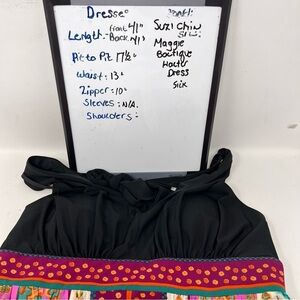 Dresse
Length- Front 41"
Back 41"
Pit to Pit 17½"
Waist: 13"
Zipper: 10"
Sleeves: N/A.
Shoulders:
Suzi Chin
Maggie
Boutique
Halter
Dress